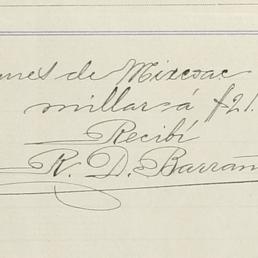 de Mixcoac
millar á $21.
Recibí
R. D. Barran